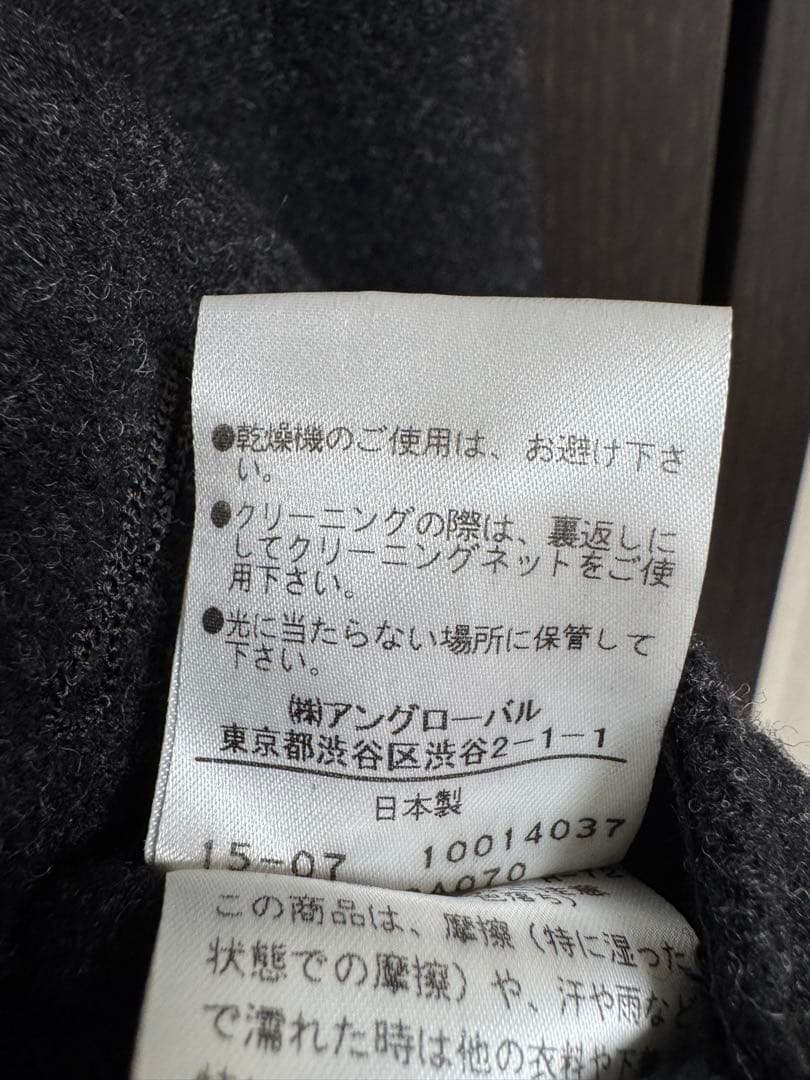 ●乾燥機のご使用は、お避け下さ
い。
●クリーニングの際は、裏返しに
してクリーニングネットをご使
用下さい。
●光に当たらない場所に保管して
下さい。
㈱アングローバル
東京都渋谷区渋谷2-1-1
日本製
15-07 10014037
この商品は、摩擦(特に湿った
状態での摩擦)や、汗や雨など
で濡れた時は他の衣料や